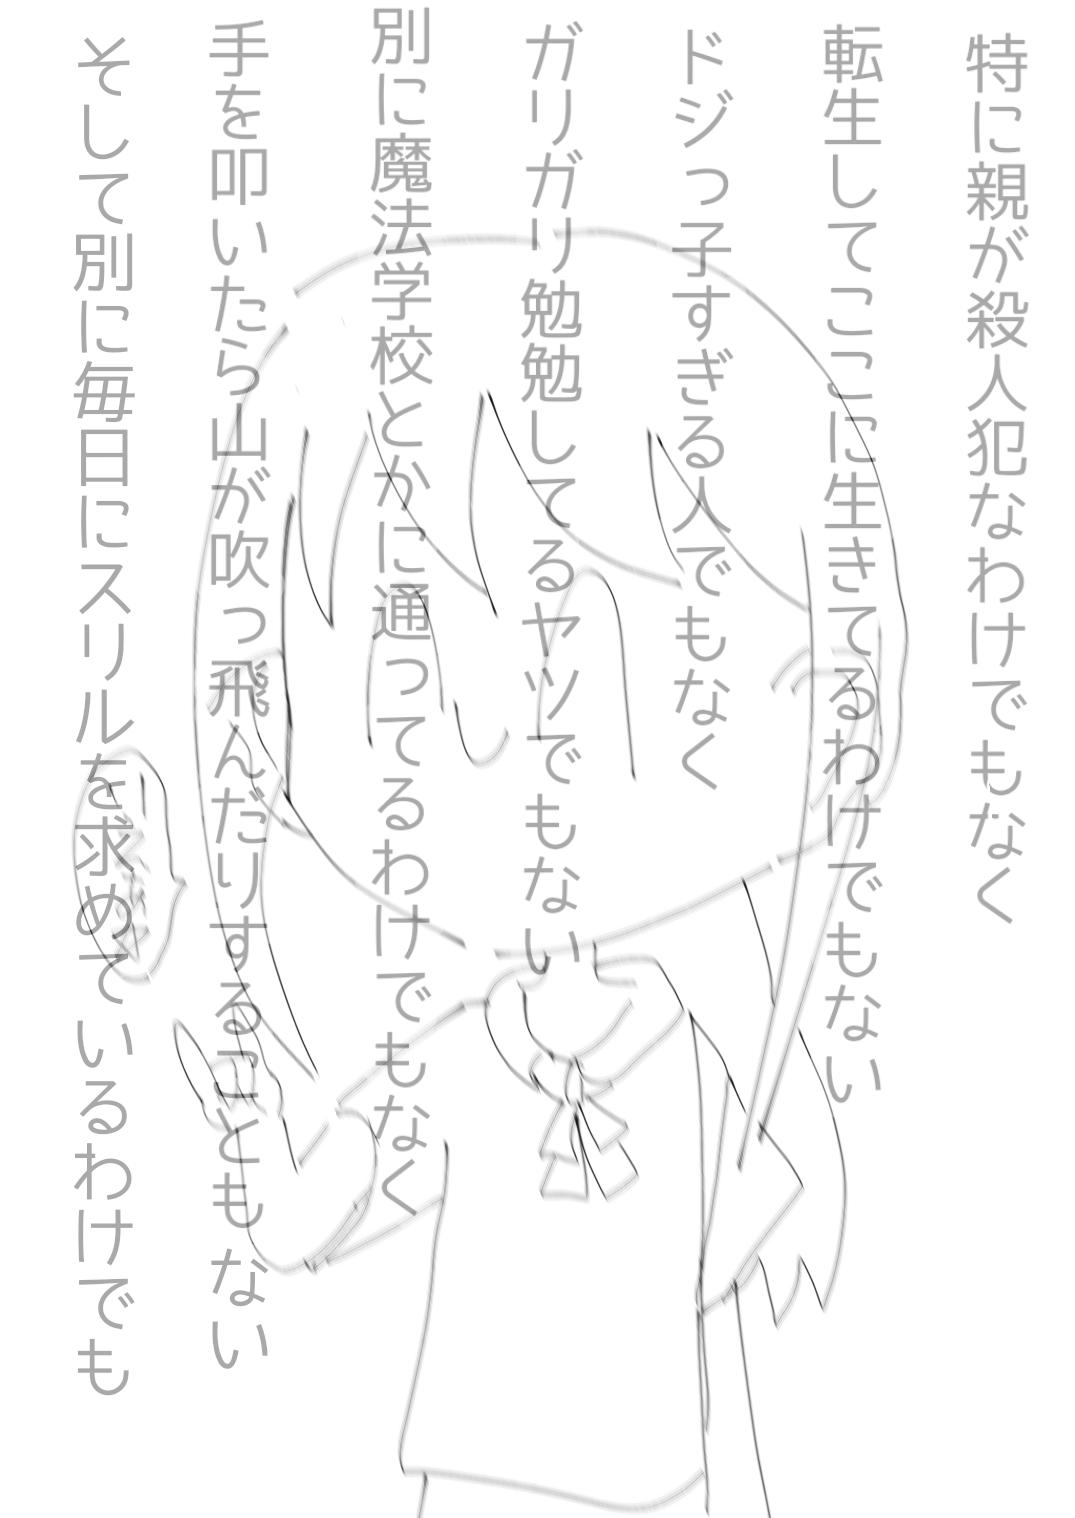 特に親が殺人犯なわけでもなく
転生してここに生きてるわけでもない
ドジっ子すぎる人でもなく
ガリガリ勉勉してるヤツでもない
別に魔法学校とかに通ってるわけでもなく
手を叩いたら山が吹っ飛んだりすることもない
そして別に毎日にスリルを求めているわけでも